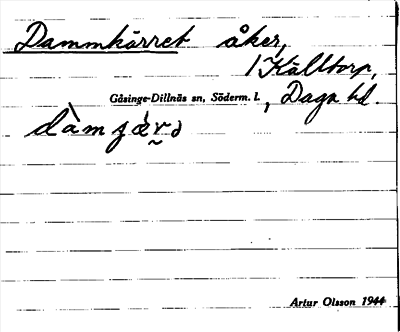 Dammkärret åker,
1 Källtorp,
Gåsinge-Dillnäs sn, Söderm. l., Daga hd.
dàmʒæ̀r̥ə
Artur Olsson 1944